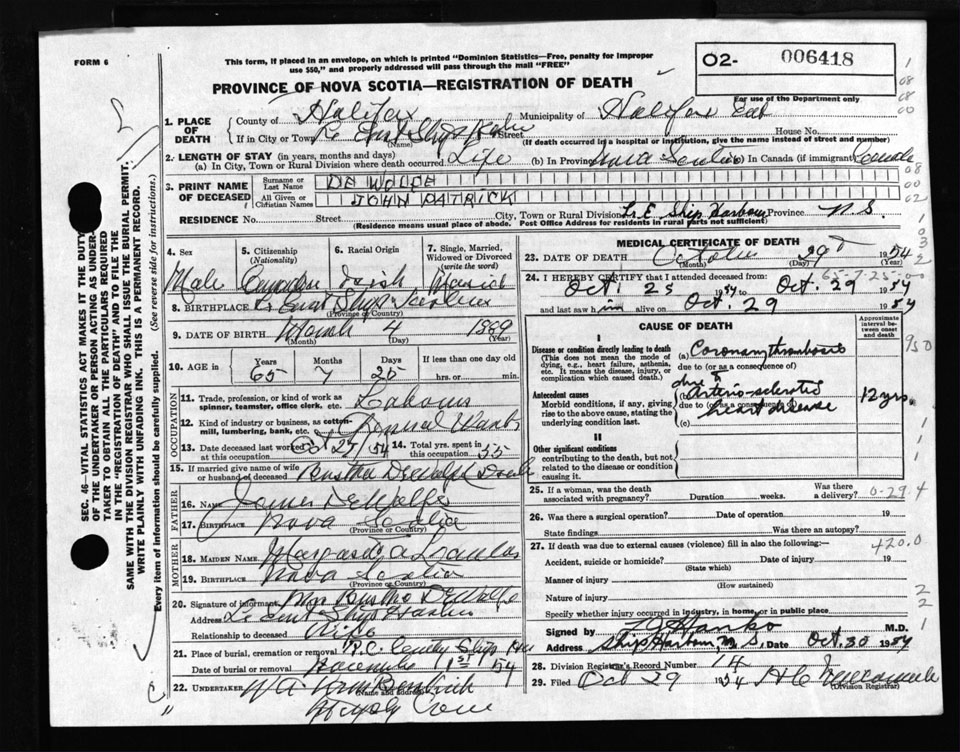 FORM 6
This form, if placed in an envelope, on which is printed "Dominion Statistics—Free, penalty for improper
use $50," and properly addressed will pass through the mail "FREE"
O2- 006418
For use of the Department only
PROVINCE OF NOVA SCOTIA—REGISTRATION OF DEATH
1. PLACE OF DEATH County of Halifax Municipality of Halifax East
If in City or Town (Name) Street House No.
(If death occurred in a hospital or institution, give the name instead of street and number)
2. LENGTH OF STAY (in years, months and days)
(a) In City, Town or Rural Division where death occurred Life (b) In Province Nova Scotia (c) In Canada (if immigrant) Canada
3. PRINT NAME OF DECEASED Surname or Last Name DE WOLFE
All Given or Christian Names JOHN PATRICK
RESIDENCE No. Street City, Town or Rural Division Lr. E. Ship Harbour Province N.S.
(Residence means usual place of abode. Post Office Address for residents in rural parts not sufficient)
4. Sex Male
5. Citizenship (Nationality) Canadian
6. Racial Origin Irish
7. Single, Married, Widowed or Divorced (write the word) Married
8. BIRTHPLACE Lr East Ship Harbour
(Province or Country)
9. DATE OF BIRTH March 4 1889
(Month) (Day) (Year)
10. AGE in Years 65 Months 7 Days 25 If less than one day hrs. or min.
OCCUPATION
11. Trade, profession, or kind of work as spinner, teamster, office clerk, etc. Labour
12. Kind of industry or business, as cotton-mill, lumbering, bank, etc. General Work
13. Date deceased last worked at this occupation Oct 27/54 14. Total yrs. spent in this occupation 55
15. If married give name of wife or husband of deceased
FATHER
16. NAME James DeWolfe
17. BIRTHPLACE Nova Scotia
(Province or Country)
MOTHER
18. MAIDEN NAME Margaret
19. BIRTHPLACE Nova Scotia
(Province or Country)
20. Signature of informant Mrs DeWolfe
Address Lr East Ship Harbour
Relationship to deceased Wife
21. Place of burial, cremation or removal R.C. Cemetery Ship Hbr
Date of burial or removal November 1st 54
22. UNDERTAKER W A
(Name and address)
MEDICAL CERTIFICATE OF DEATH
23. DATE OF DEATH October 29 1954
(Month) (Day)
65-7-25-00
24. I HEREBY CERTIFY that I attended deceased from
Oct. 25 1954 to Oct. 29 1954
and last saw him alive on Oct. 29 1954
CAUSE OF DEATH
Approximate interval between onset and death
I
Disease or condition directly leading to death (a) Coronary thrombosis
(This does not mean the mode of dying, e.g., heart failure, asthenia, etc. It means the disease, injury, or complication which caused death.)
due to (or as a consequence of)
due to
Antecedent causes (b) Arterio-sclerotic 12 yrs.
Morbid conditions, if any, giving rise to the above cause, stating the underlying condition last.
due to (or as a consequence of)
heart disease
(c)
II
Other significant conditions contributing to the death, but not related to the disease or condition causing it.
25. If a woman, was the death associated with pregnancy? Duration weeks. Was there a delivery?
0-29
26. Was there a surgical operation? Date of operation 19
State findings Was there an autopsy?
27. If death was due to external causes (violence) fill in also the following:—
420.0
Accident, suicide or homicide? Date of injury 19
(State which)
Manner of injury
(How sustained)
Nature of injury
Specify whether injury occurred in industry, in home, or in public place
Signed by M.D.
Address Ship Harbour, N.S. Date Oct. 30 1954
28. Division Registrar's Record Number 14
29. Filed Oct 29 1954
(Division Registrar)
SEC. 46—VITAL STATISTICS ACT MAKES IT THE DUTY
OF THE UNDERTAKER OR PERSON ACTING AS UNDER-
TAKER TO OBTAIN ALL THE PARTICULARS REQUIRED
IN THE "REGISTRATION OF DEATH" AND TO FILE THE
SAME WITH THE DIVISION REGISTRAR WHO SHALL ISSUE THE BURIAL PERMIT.
WRITE PLAINLY WITH UNFADING INK. THIS IS A PERMANENT RECORD.
Every item of information should be carefully supplied. (See reverse side for instructions.)